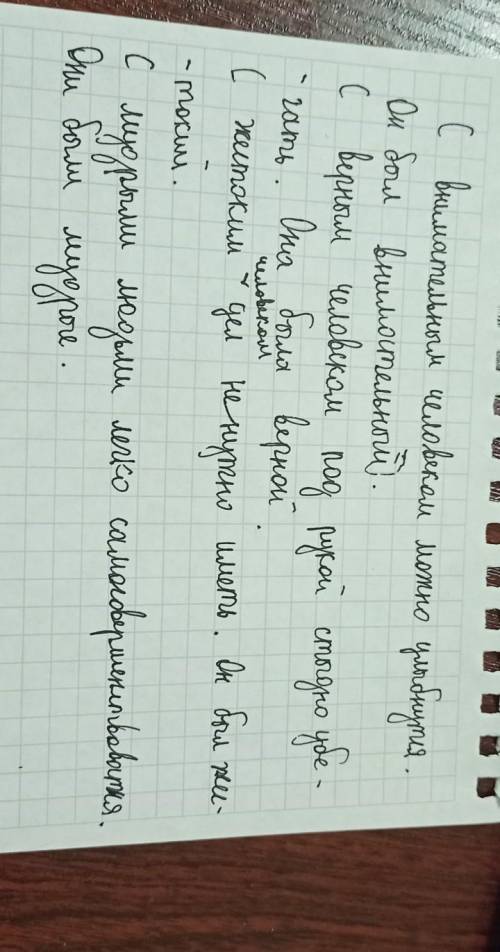 С внимательным человеком можно улыбнутся.
Он был внимательный).
С верным человеком под рукой стыдно убе-
-гать. Она была верной.
С жестоким человеком дел не нужно иметь. Он был жи-
-токий.
С мудрыми людьми легко самосовершенствоватся.
Они были мудрые.